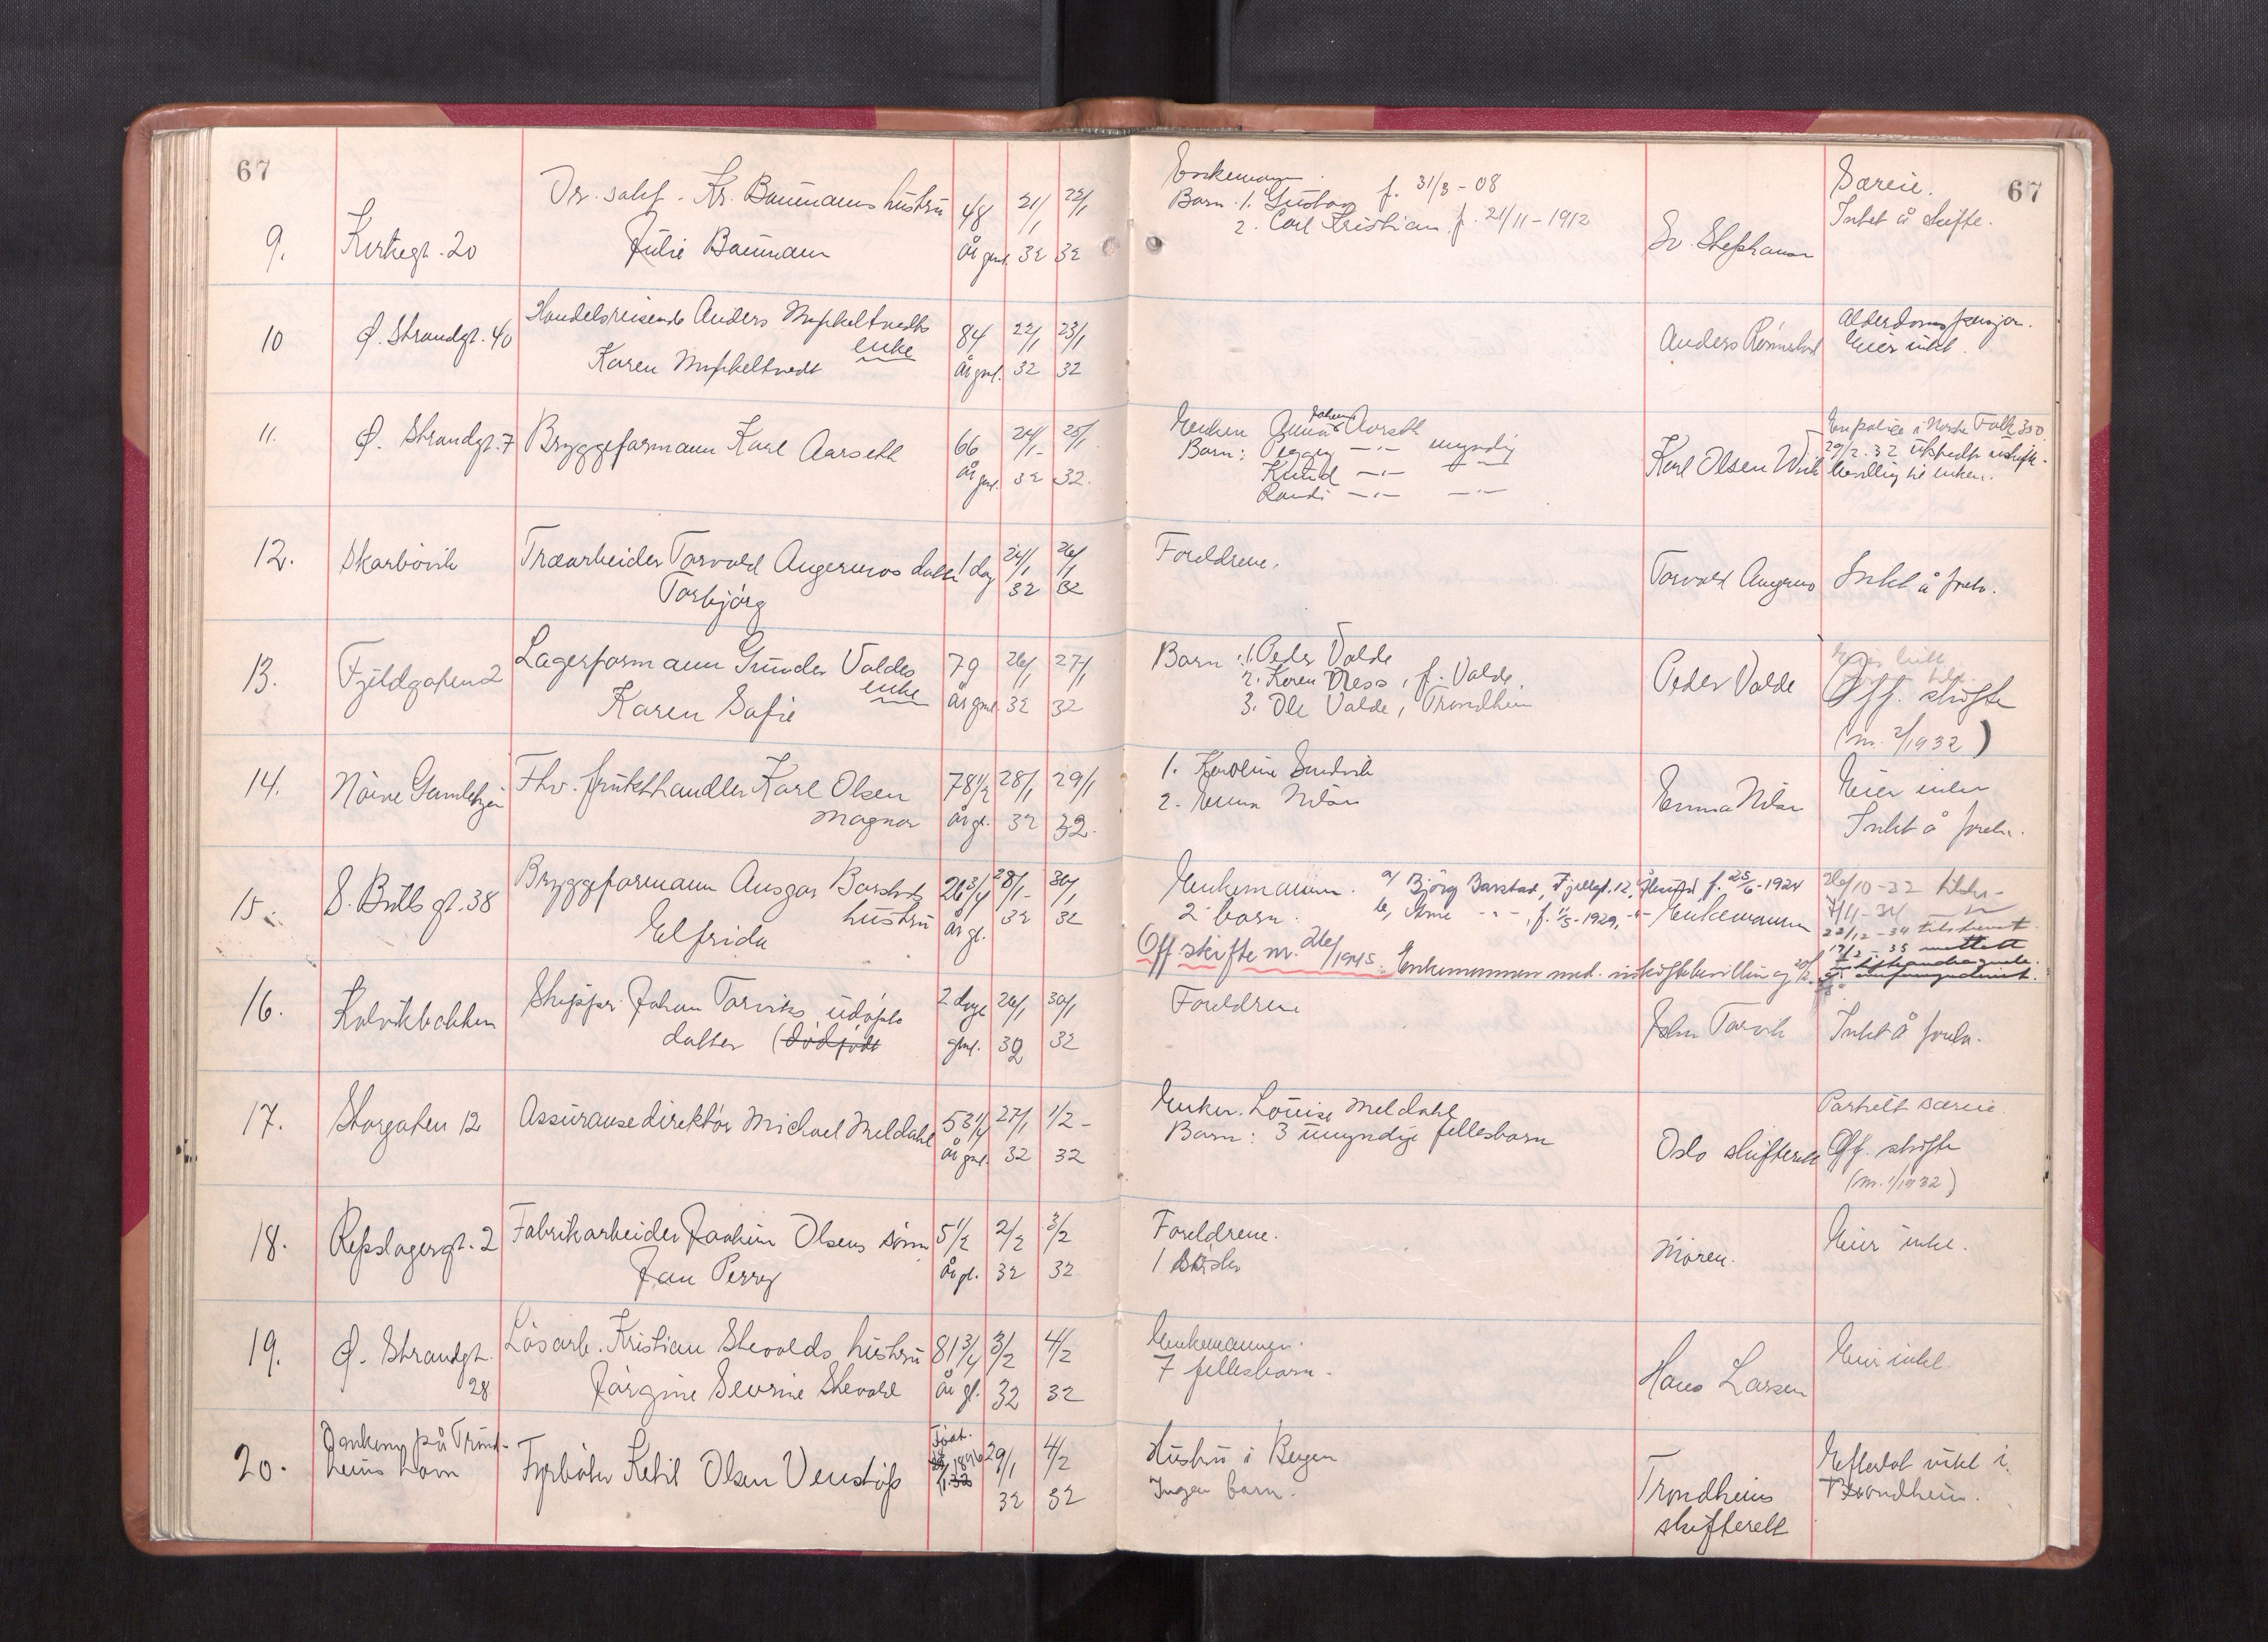 67
67
9.
Kirkegt. 20
Or. sakf. Kr. Baumanns hustru
Julie Baumann
48
år gml.
21/1
32
22/1
32
Enkemann.
Barn: 1. Gustav f. 31/3 - 08
2. Carl Kristian f. 21/11 - 1912
Sv. Stephansen
Særeie.
Intet å skifte.
10
Ø. Strandgt. 40
Handelsreisende Anders Myskeltvedts
enke
Karen Myskeltvedt
84
år gml.
22/1
32
23/1
32
Anders
Alderdomspensjon.
Eier intet.
11.
Ø. Strandgt. 7
Bryggeformann Karl Aarseth
66
år gml.
24/1 -
32
25/1
32.
Enken Aarseth
Barn: Peggy -"- myndig
Knud -"- -"-
Randi -"- -"-
Karl Olsen Wiik
En police i Norske Folk 350
29/2. 32 uskifte-
bevilling til enken.
12.
Skarbøvik
Træarbeider Torvald Angermos datter
Torbjørg
1 dag
24/1
32
26/1
32
Foreldrene.
Torvald Angermo
Intet å foreta.
13.
Fjeldgaten 2
Lagerformann Gunder Valdes
enke
Karen Sofie
79
år gml.
26/1
32
27/1
32
Barn: 1. Peder Valde
2. Karen Ness, f. Valde
3. Ole Valde, Trondheim
Peder Valde
Off. skifte
(nr. 2/1932)
14.
Nørve
Fhv. frukthandler Karl Olsen
Magnar
78 1/2
år gl.
28/1
32
29/1
32.
1. Karoline Sandvik
2. Emma Nilsen
Emma Nilsen
Eier intet
Intet å foreta.
15.
S. Bulls gt. 38
Bryggeformann Ansgar Barstads
hustru
Elfrida
26 3/4
år gl.
28/1 -
32
30/1
32
Enkemannen.
2 barn.
a, Bjørg Barstad, Fjellgt. 12, Ålesund f. 25/6 - 1924
b, Arne -"- , f. 11/5 - 1929, -"-
Enkemannen
26/10 - 32
7/11 - 34
22/12 - 34
17/2 - 35
Off. skifte nr. 26/1945. Enkemannen med. uskiftebevilling
16.
Kalvikbakken
Skipper Johan Torviks udøpte
datter (dødfødt
2 dage
gml.
26/1
32
30/1
32
Foreldrene
John Torvik
Intet å foreta.
17.
Storgaten 12
Assuransedirektør Michael Meldahl
53 1/4
år gml.
27/1
32
1/2 -
32
Enken Louise Meldahl
Barn: 3 umyndige fellesbarn
Oslo skifterett
Partielt særeie.
Off. skifte
(nr. 1/1932)
18.
Repslagergt. 2
Fabrikarbeider Joakim Olsens sønn
Jan Perry
5 1/2
år gl.
2/2
32
3/2
32
Foreldrene.
1 søster
Moren.
Eier intet.
19.
Ø. Strandgt.
28
Løsarb. Kristian Stevolds hustru
Jørgine Severine Stevold
81 3/4
år gl.
3/2
32
4/2
32
Enkemannen.
7 fellesbarn.
Hans Larsen
Eier intet.
20.
på Trond-
heims havn
Fyrbøter Ketil Olsen Venstøp
Født.
1896
29/1
32
4/2
32
Hustru i Bergen
Ingen barn.
Trondheims
skifterett
Efterlot intet i
Trondheim.